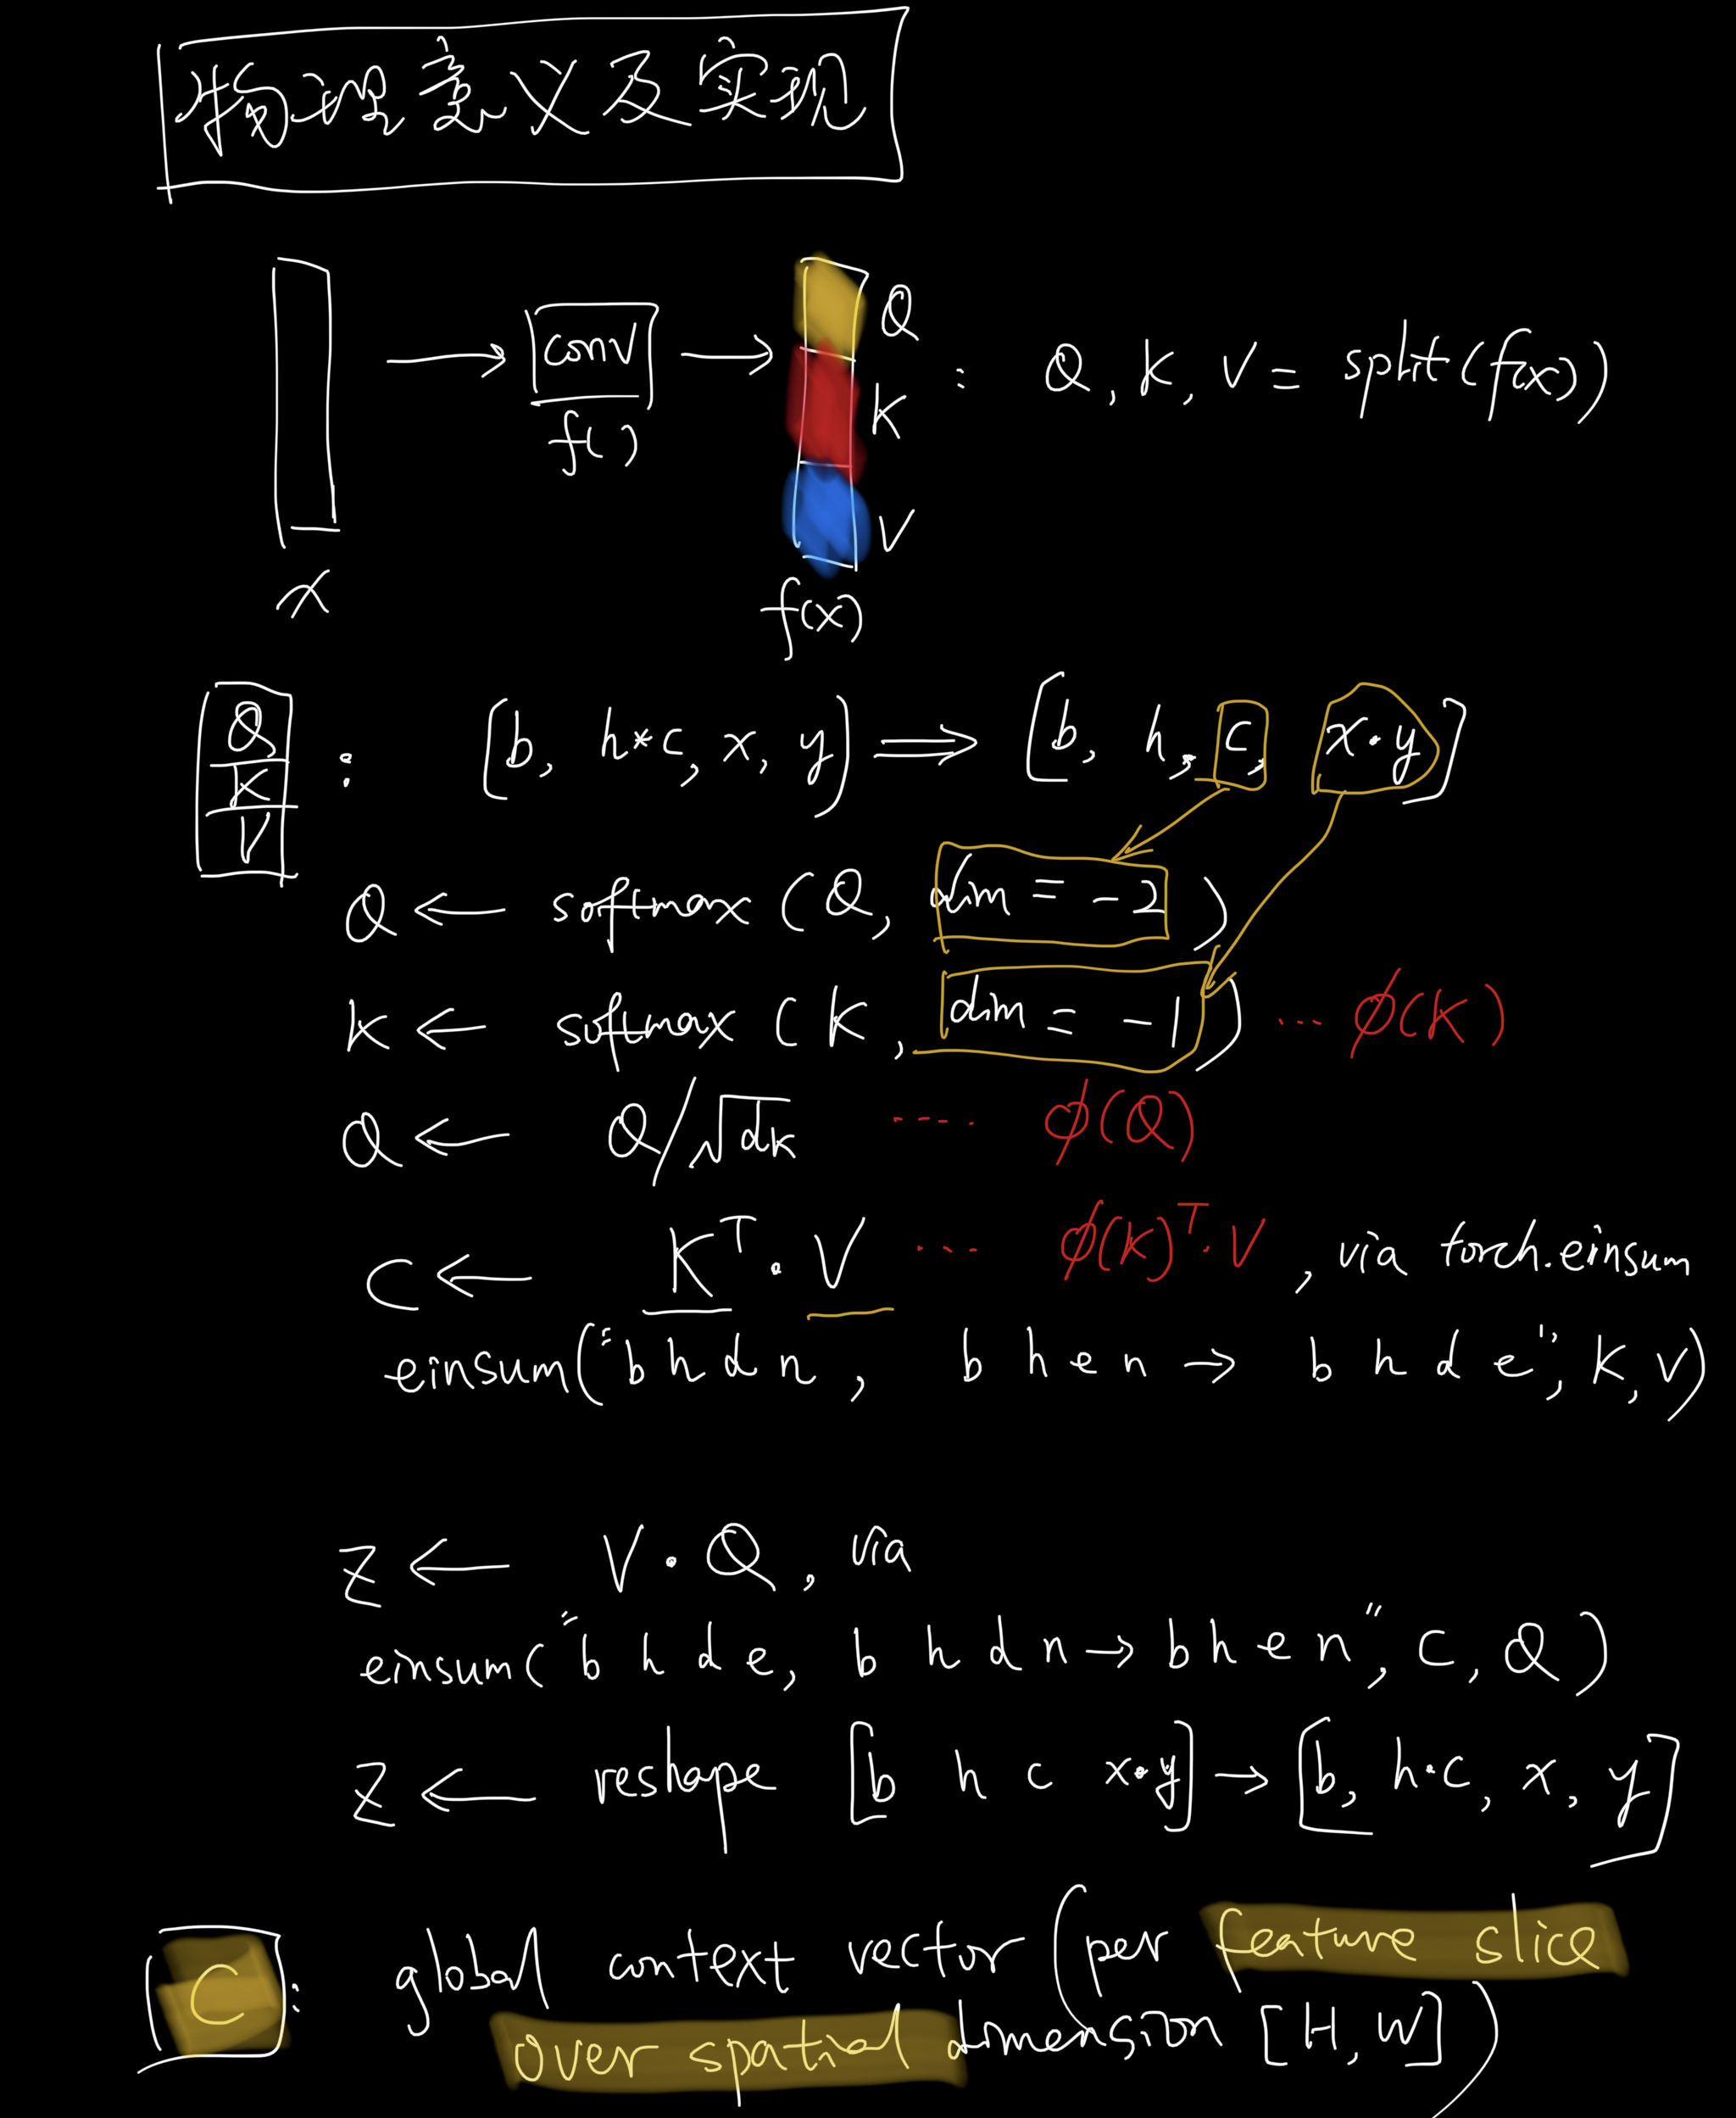 物理意义及实现
conv
f( )
x
Q
K
V
f(x)
: Q, K, V = split(f(x))
Q
K
V
: [b, h*c, x, y] ⟹ [b, h, c, x·y]
Q ← softmax (Q, dim = -2)
K ← softmax (K, dim = -1) ... φ(K)
Q ← Q/√dk .... φ(Q)
C ← K^T · V ... φ(K)^T · V , via torch.einsum
einsum("b h d n, b h e n → b h d e", K, V)
Z ← V · Q, via
einsum("b h d e, b h d n → b h e n", C, Q)
Z ← reshape [b h c x·y] → [b, h·c, x, y]
C : global context vector (per feature slice
over spatial dimension [H, W])